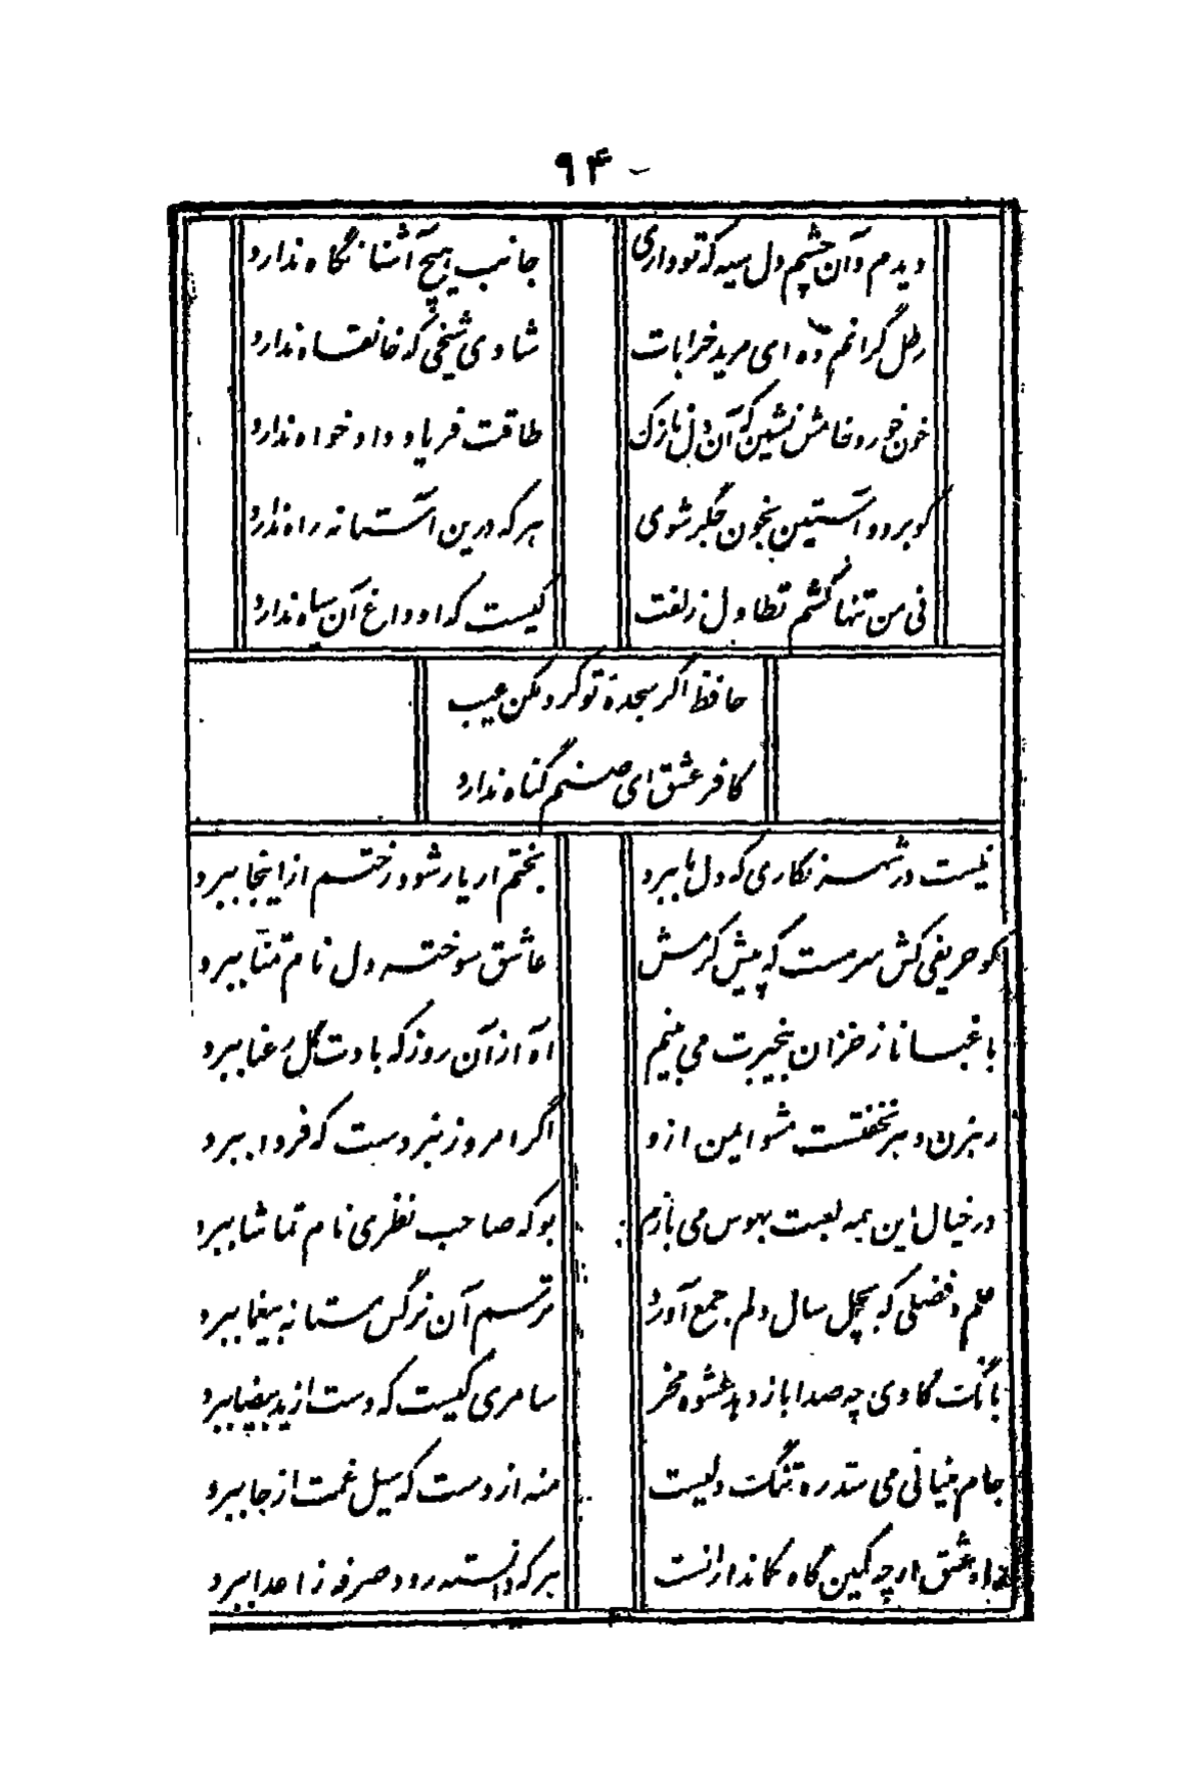 ۹۴
دیدم وآن چشم دل سیه که تو داری
جانب هیچ آشنا نگاه ندارد
رطل گرانم ده ای مرید خرابات
شادی شیخی که خانقاه ندارد
خون خور و خامش نشین که آن دل نازک
طاقت فریاد دادخواه ندارد
گو برو و آستین بخون جگر شوی
هرکه درین آستانه راه ندارد
نی من تنها کشم تطاول زلفت
کیست که او داغ آن سیاه ندارد
حافظ اگر سجدهٔ تو کرد مکن عیب
کافر عشق ای صنم گناه ندارد
نیست در شهر نگاری که دل ما ببرد
بختم ار یار شود رختم از اینجا ببرد
کو حریفی کش سرمست که پیش کرمش
عاشق سوخته دل نام تمنّا ببرد
باغبانا ز خزان بیخبرت می بینم
آه از آن روز که بادت گل رعنا ببرد
رهزن دهر نخفتست مشو ایمن ازو
اگر امروز نبردست که فردا ببرد
در خیال این همه لعبت بهوس می بازم
بو که صاحب نظری نام تماشا ببرد
علم و فضلی که بچهل سال دلم جمع آورد
ترسم آن نرگس مستانه بیغما ببرد
بانگ گاوی چه صدا باز دهد عشوه مخر
سامری کیست که دست از ید بیضا ببرد
جام مینائی می سد ره تنگ دلیست
منه از دست که سیل غمت از جا ببرد
راه عشق ار چه کمین گاه کماندارانست
هرکه دانسته رود صرفه ز اعدا ببرد